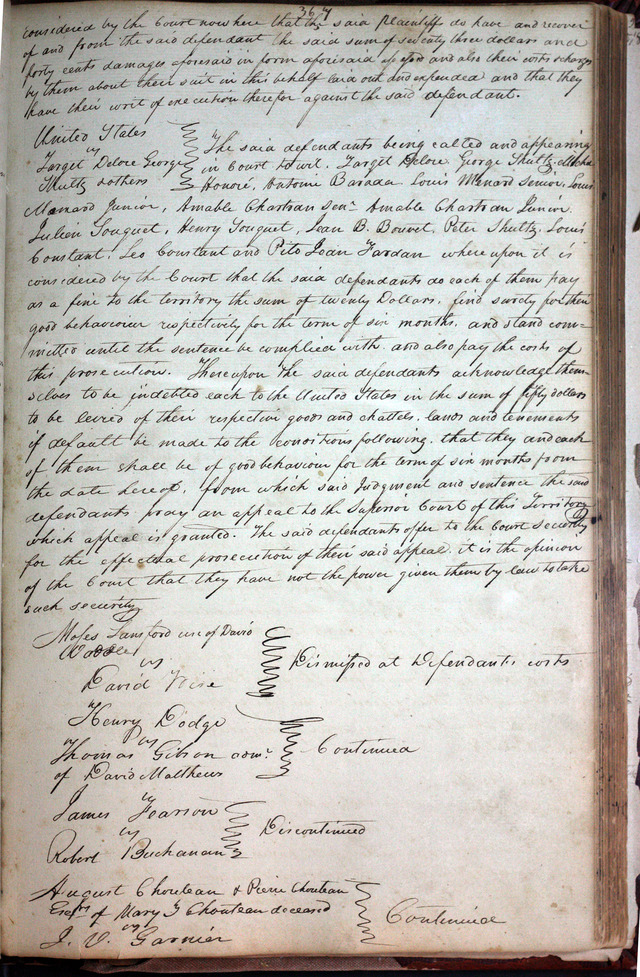 367
considered by the Court now here that the said plaintiffs do have and recover
of and from the said defendant the said sum of seventy three dollars and
forty cents damages aforesaid in form aforesaid and also their costs & charges
by them about their suit in this behalf laid out and expended and that they
have their writ of execution therefor against the said defendant.
United States
vs
Target Delore George
Shultz & others
The said defendants being called and appearing
in Court to wit. Target Delore George Shultz
Honoré, Antoine Barada Louis Menard Senior, Louis
Menard Junior, Amable Chartran Senr Amable Chartran Junior
Julien Touguet, Henry Touguet, Jean B. Bouvet, Peter Shultz. Louis
Constant. Leo Constant and Pito Jean Jardan whereupon it is
considered by the Court that the said defendants do each of them pay
as a fine to the territory the sum of twenty Dollars, find surety for their
good behaviour respectively for the term of six months, and stand com=
mitted until the sentence be complied with and also pay the costs of
this prosecution. Whereupon the said defendants acknowledge them-
selves to be indebted each to the United States in the sum of fifty dollars
to be levied of their respective goods and chattels, lands and tenements
if default be made to the conditions following. that they and each
of them shall be of good behaviour for the term of six months from
the date hereof. from which said Judgment and sentence the said
defendants pray an appeal to the Superior Court of this Territory
which appeal is granted. The said defendants offer to the Court security
for the effectual prosecution of their said appeal. it is the opinion
of the Court that they have not the power given them by law to take
such security
Moses Lansford use of David
vs
David Wise
Dismissed at Defendants costs
Henry Dodge
vs
Thomas Gibson admr
of David Matthews
Continued
James Fearson
vs
Robert Buchanan
Discontinued
August Chouteau & Pierre Chouteau
of Mary T Chouteau deceased
vs
J. V. Garnier
Continued